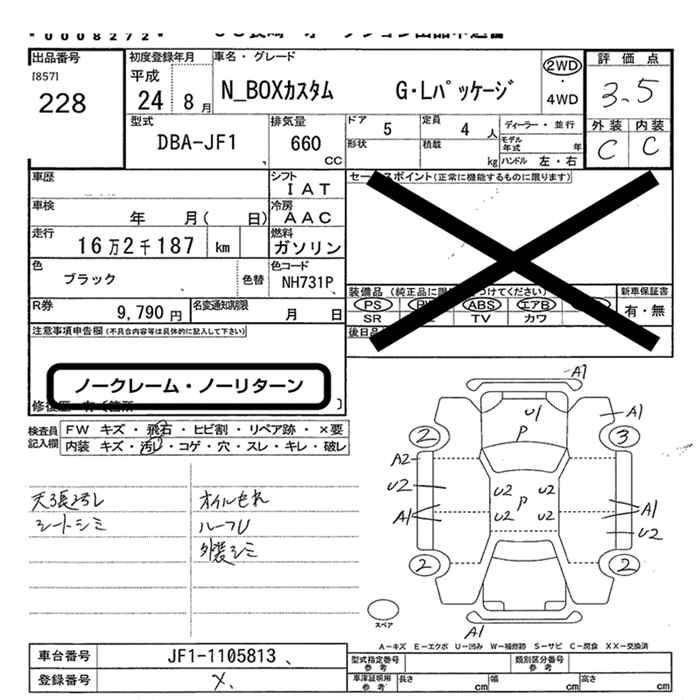 *0008272*
出品番号
[857]
228
初度登録年月
平成
24 8月
車名・グレード
N_BOXカスタム G・Lパッケージ
2WD
・
4WD
評価点
3.5
外装 内装
C C
型式
DBA-JF1
排気量
660
CC
ドア 5
定員 4 人
形状
積載 kg
ディーラー・並行
モデル年式 年
ハンドル 左・右
車歴
シフト
IAT
車検
年 月( 日)
冷房
AAC
走行
16万2千187 km
燃料
ガソリン
色
ブラック
色替
色コード
NH731P
R券
9,790円
名変通知期限
月 日
セールスポイント(正常に機能するものに限ります)
装備品
PS ABS エアB
SR TV カワ
新車保証書
有・無
注意事項申告欄(不具合内容等は具体的に記入して下さい)
ノークレーム・ノーリターン
検査員
記入欄
FW キズ・飛石・ヒビ割・リペア跡・×要
内装 キズ・汚レ・コゲ・穴・スレ・キレ・破レ
天張汚レ
シートシミ
オイルモレ
ルーフU
外装シミ
A1
U1
A1
P
2
3
A2
U2
U2
U2
P
A1
U2
U2
A1
U2
2
2
A1
スペア
A-キズ E-エクボ U-凹み W-補修跡 S-サビ C-腐食 XX-交換済
車台番号
JF1-1105813
登録番号
メ
型式指定番号
参考
類別区分番号
参考
車庫証明用
参考
長さ cm
幅 cm
高さ cm